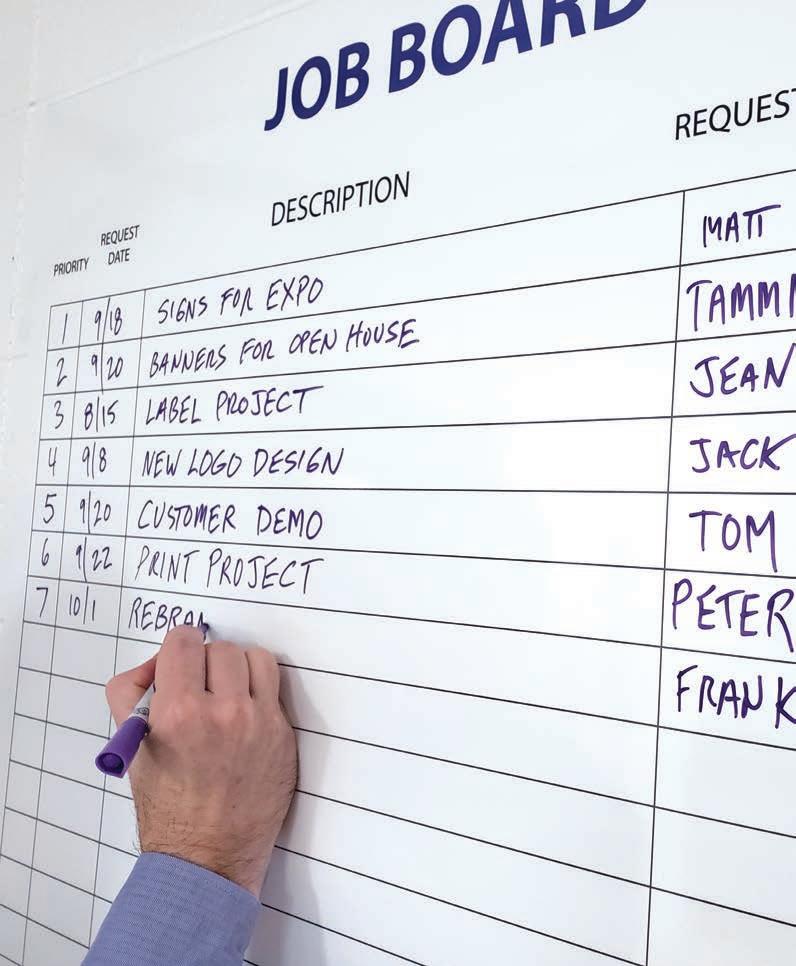 JOB BOARD
PRIORITY REQUEST DATE DESCRIPTION REQUEST
1 9/18 SIGNS FOR EXPO MATT
2 9/20 BANNERS FOR OPEN HOUSE TAMMI
3 8/15 LABEL PROJECT JEAN
4 9/8 NEW LOGO DESIGN JACK
5 9/20 CUSTOMER DEMO TOM
6 9/22 PRINT PROJECT PETER
7 10/1 REBRAN FRANK